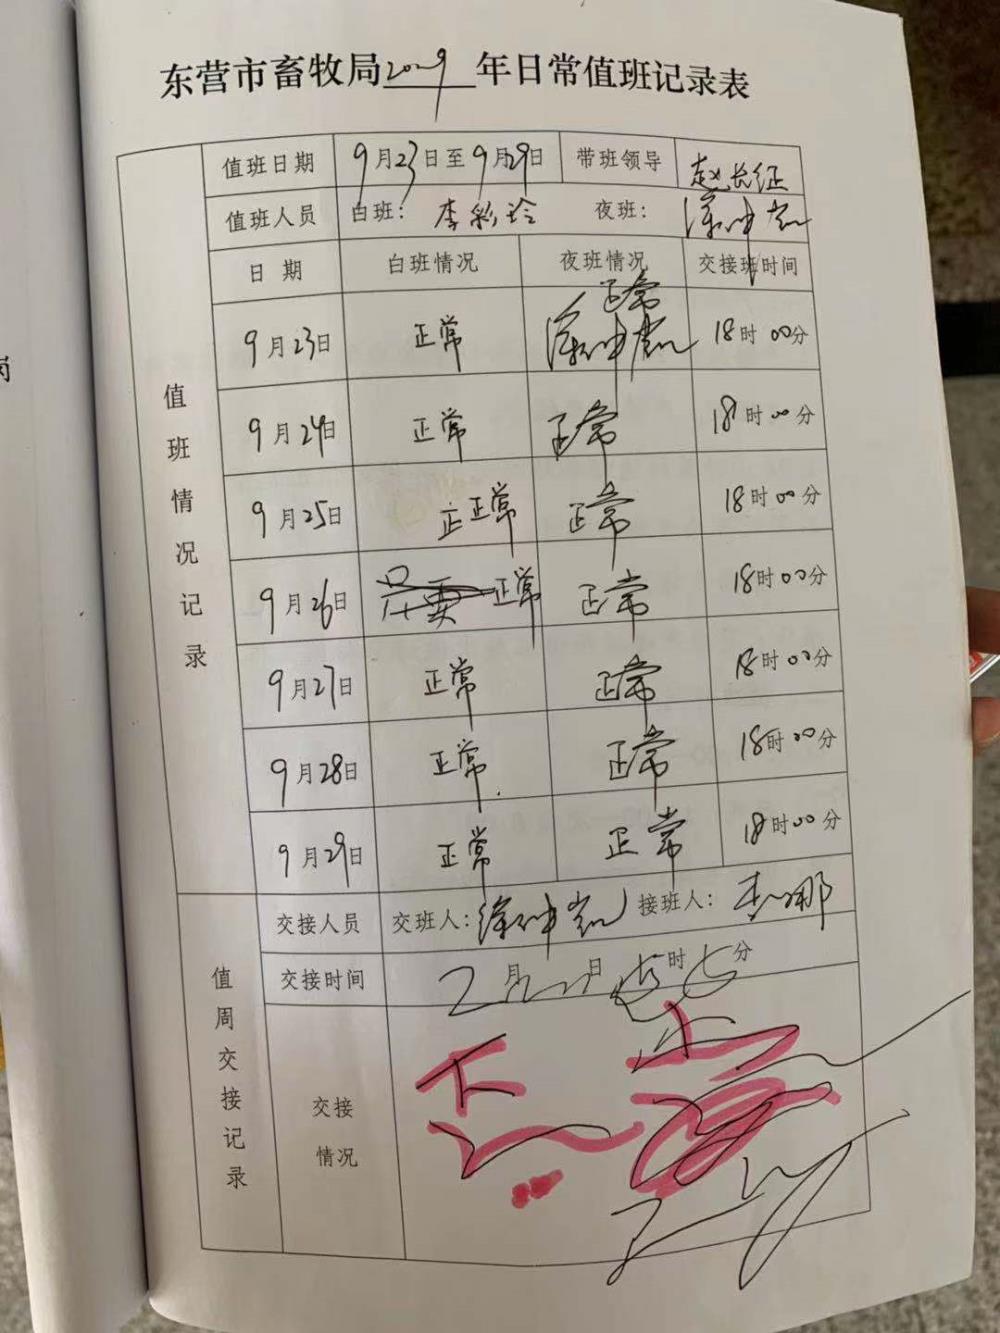 东营市畜牧局2029年日常值班记录表
值班日期 9月23日至9月29日 带班领导 赵长征
值班人员 白班： 李彩玲 夜班：
日期 白班情况 夜班情况 交接班时间
9月23日 正常 正常 18时00分
9月24日 正常 正常 18时00分
9月25日 正 正常 正常 18时00分
9月26日 正常 正常 18时00分
9月27日 正常 正常 18时00分
9月28日 正常 正常 18时00分
9月29日 正常 正常 18时00分
值班情况记录
交接人员 交班人： 接班人：
交接时间 月 日 时 分
值周交接记录
交接情况
岗